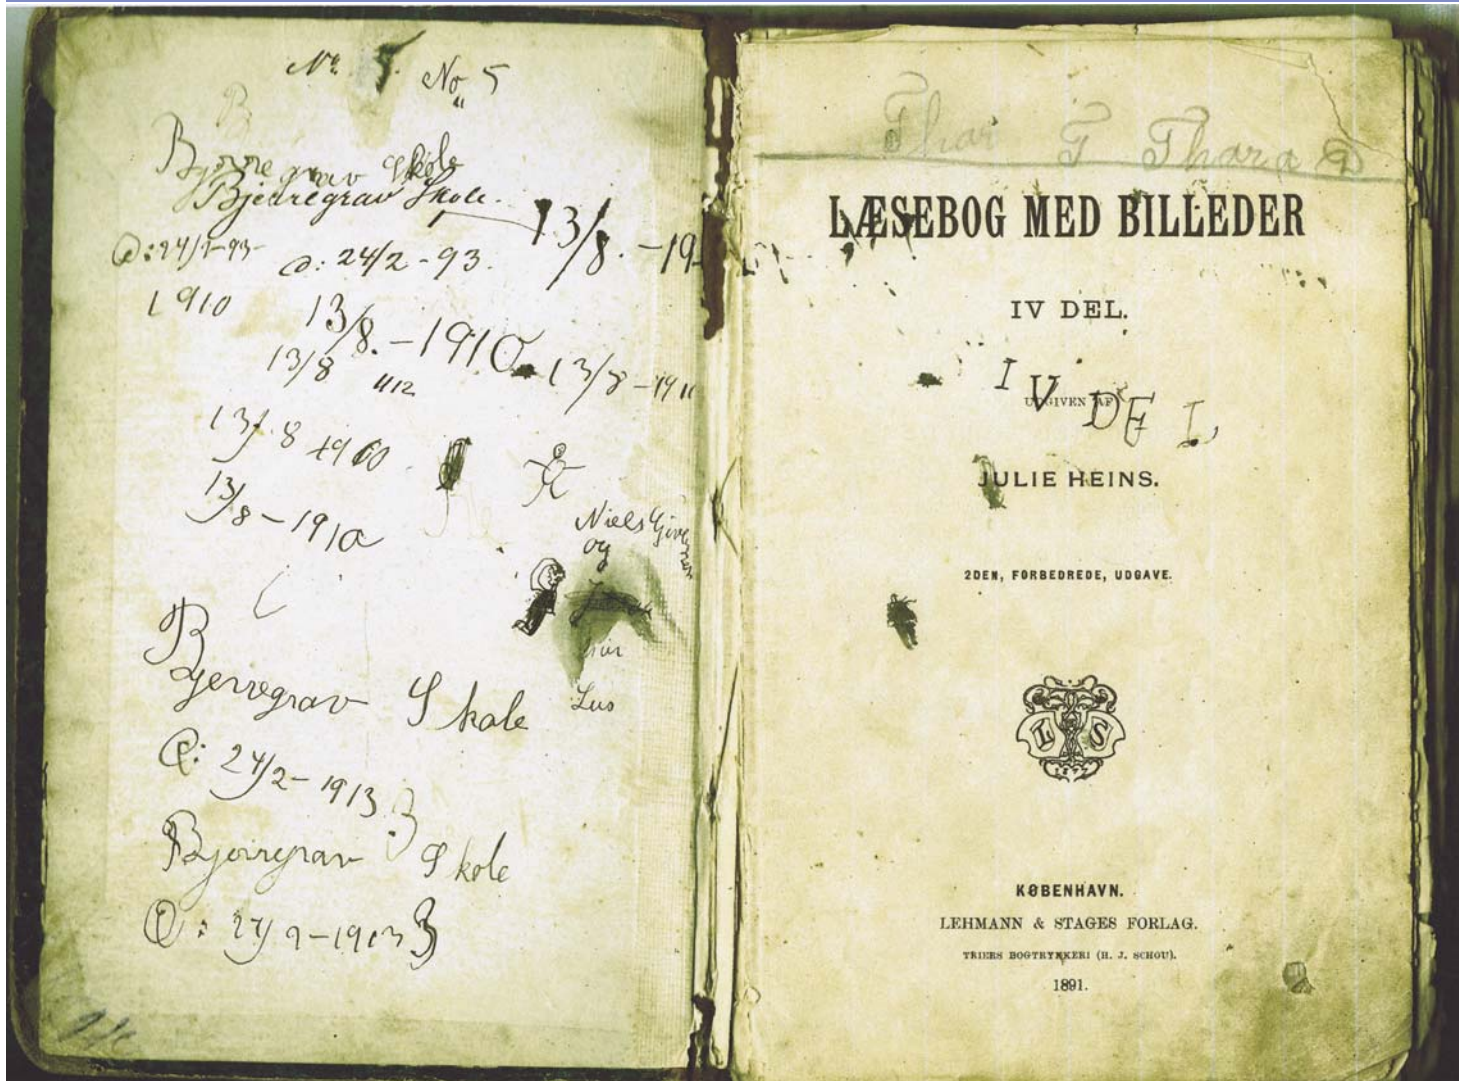 No 5
Bjerregrav Skole
Bjerregrav Skole.
d: 24/2-93.
13/8.-19
1910
13/8.-1910
13/8
13/8-191
13/8
13/8-1910
Niels
og
har
Lus
Bjerregrav Skole
d: 24/2-1913
Bjerregrav Skole
Thar T Thara
LÆSEBOG MED BILLEDER
IV DEL.
IV DEL
UDGIVEN AF
JULIE HEINS.
2DEN, FORBEDREDE, UDGAVE.
L S
KØBENHAVN.
LEHMANN & STAGES FORLAG.
TRIERS BOGTRYKKERI (H. J. SCHOU).
1891.